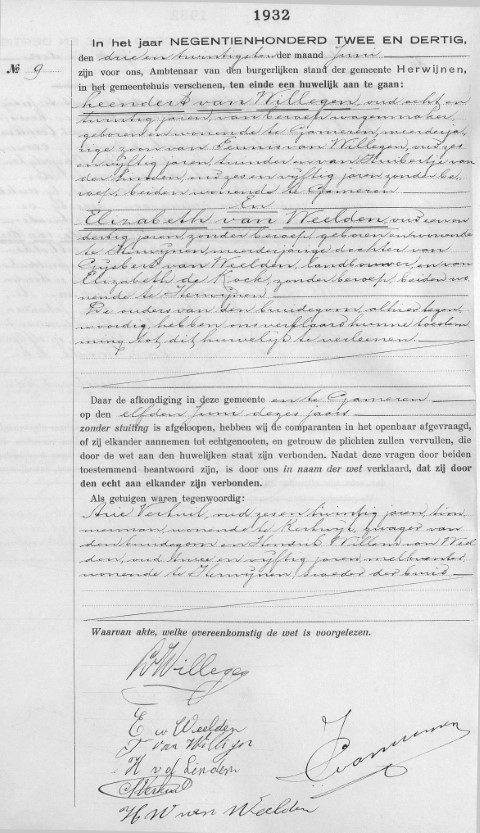 1932
In het jaar NEGENTIENHONDERD TWEE EN DERTIG,
den drie en twintigsten der maand Juni
№ 9
zijn voor ons, Ambtenaar van den burgerlijken stand der gemeente Herwijnen,
in het gemeentehuis verschenen, ten einde een huwelijk aan te gaan:
Leendert van Willegen, oud acht en
twintig jaren, van beroep wagenmaker,
geboren en wonende te Gameren, meerderja
rige zoon van Teunis van Willegen, oud zes
en vijftig jaren, tuinder en van Huibertje van
der Linden, oud zes en vijftig jaren, zonder be
roep, beiden wonende te Gameren
En
Elizabeth van Weelden, oud een en
dertig jaren, zonder beroep, geboren en wonende
te Herwijnen, meerderjarige dochter van
Gijsbert van Weelden, landbouwer en van
Elizabeth de Kock, zonder beroep, beiden wo
nende te Herwijnen
De ouders van den bruidegom, alhier tegen
woordig hebben ons verklaard hunne toestem
ming tot dit huwelijk te verleenen
Daar de afkondiging in deze gemeente en te Gameren
op den elfden Juni dezes jaars
zonder stuiting is afgeloopen, hebben wij de comparanten in het openbaar afgevraagd,
of zij elkander aannemen tot echtgenooten, en getrouw de plichten zullen vervullen, die
door de wet aan den huwelijken staat zijn verbonden. Nadat deze vragen door beiden
toestemmend beantwoord zijn, is door ons in naam der wet verklaard, dat zij door
den echt aan elkander zijn verbonden.
Als getuigen waren tegenwoordig:
Arie Verhul, oud zes en twintig jaren, tim
merman, wonende te Kerkwijk, zwager van
den bruidegom en Hendrik Willem van Weel
den, oud twee en vijftig jaren, melkventer
wonende te Herwijnen, broeder der bruid
Waarvan akte, welke overeenkomstig de wet is voorgelezen.
L v Willegen
E v Weelden
T van Willegen
H v d Linden
A Verhul
H W van Weelden